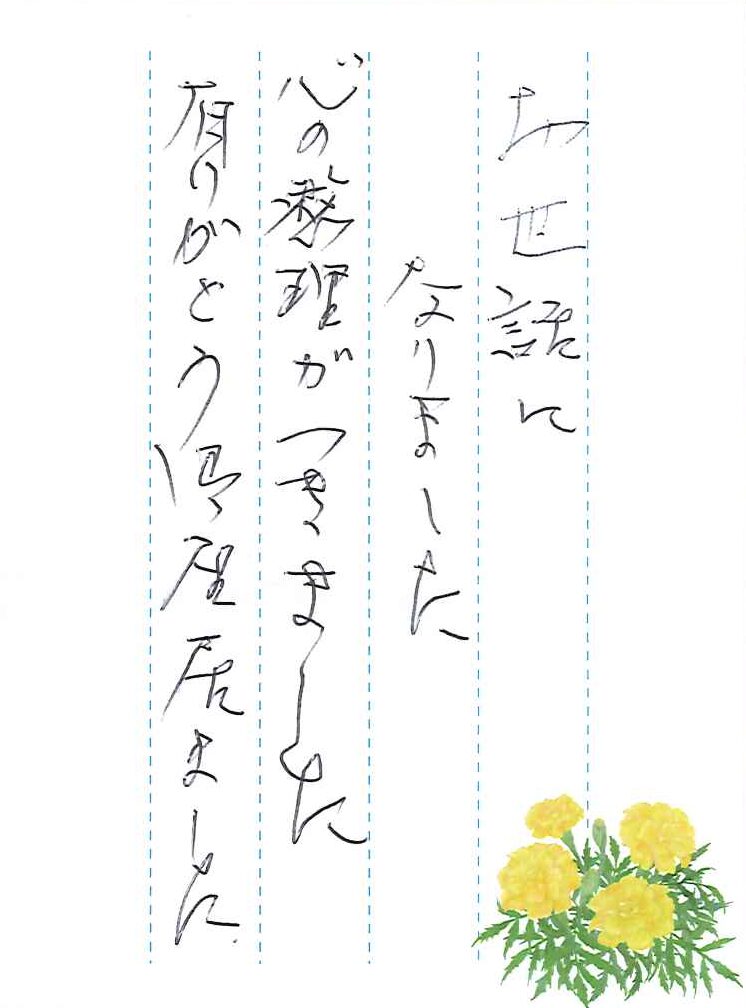 お世話に
なりました
心の整理がつきました
有りがとう御座居ました